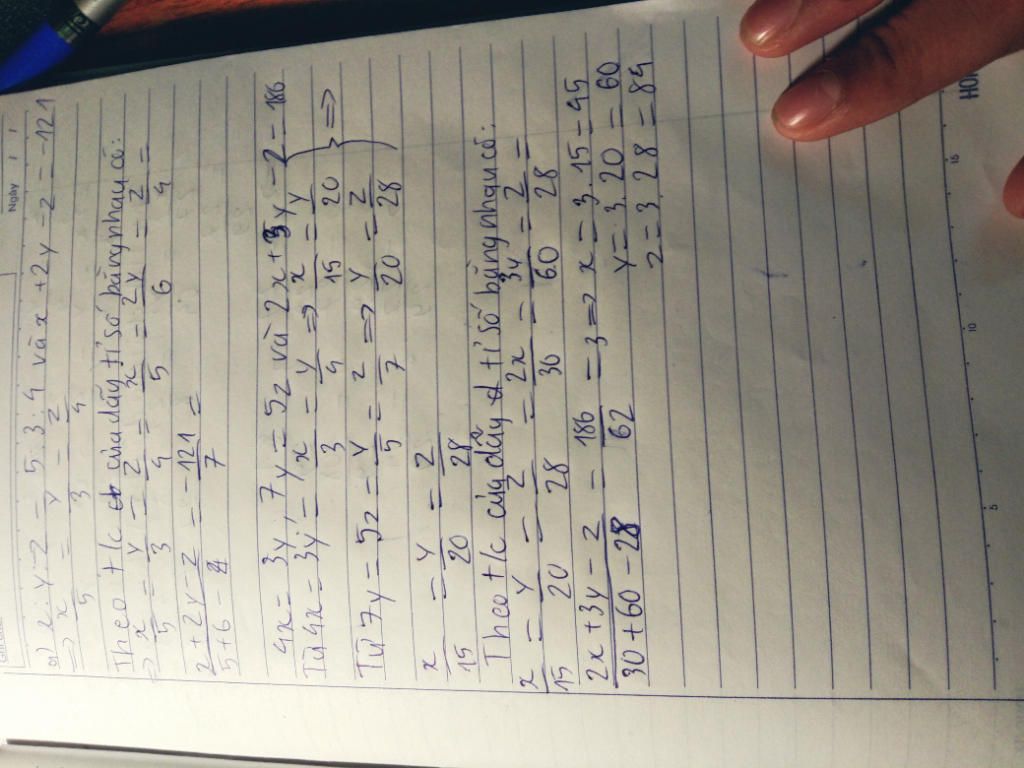 Ngày
a) x:y:z = 5:3:4 và x+2y-z = -121
=> x/5 = y/3 = z/4
Theo t/c của dãy tỉ số bằng nhau có:
=> x/5 = y/3 = z/4 = x/5 = 2y/6 = z/4 =
2+2y-z/5+6-4 = -121/7 =
4x = 3y; 7y = 5z và 2x+3y-z = 186
Từ 4x = 3y => x/3 = y/4 => x/15 = y/20 } =>
Từ 7y = 5z = y/5 = z/7 => y/20 = z/28
x/15 = y/20 = z/28
Theo t/c của dãy tỉ số bằng nhau có:
x/15 = y/20 = z/28 = 2x/30 = 3y/60 = z/28 =
2x+3y-z/30+60-28 = 186/62 = 3 => x = 3.15 = 45
y = 3.20 = 60
z = 3.28 = 84
5 10 15